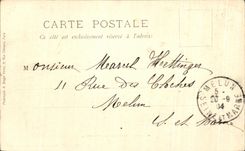 CARTE POSTALE
Ce côté est exclusivement réservé à l'adresse
Monsieur Marcel Hettinger
11 Rue des Cloches
Melun
S. et Marne
MELUN